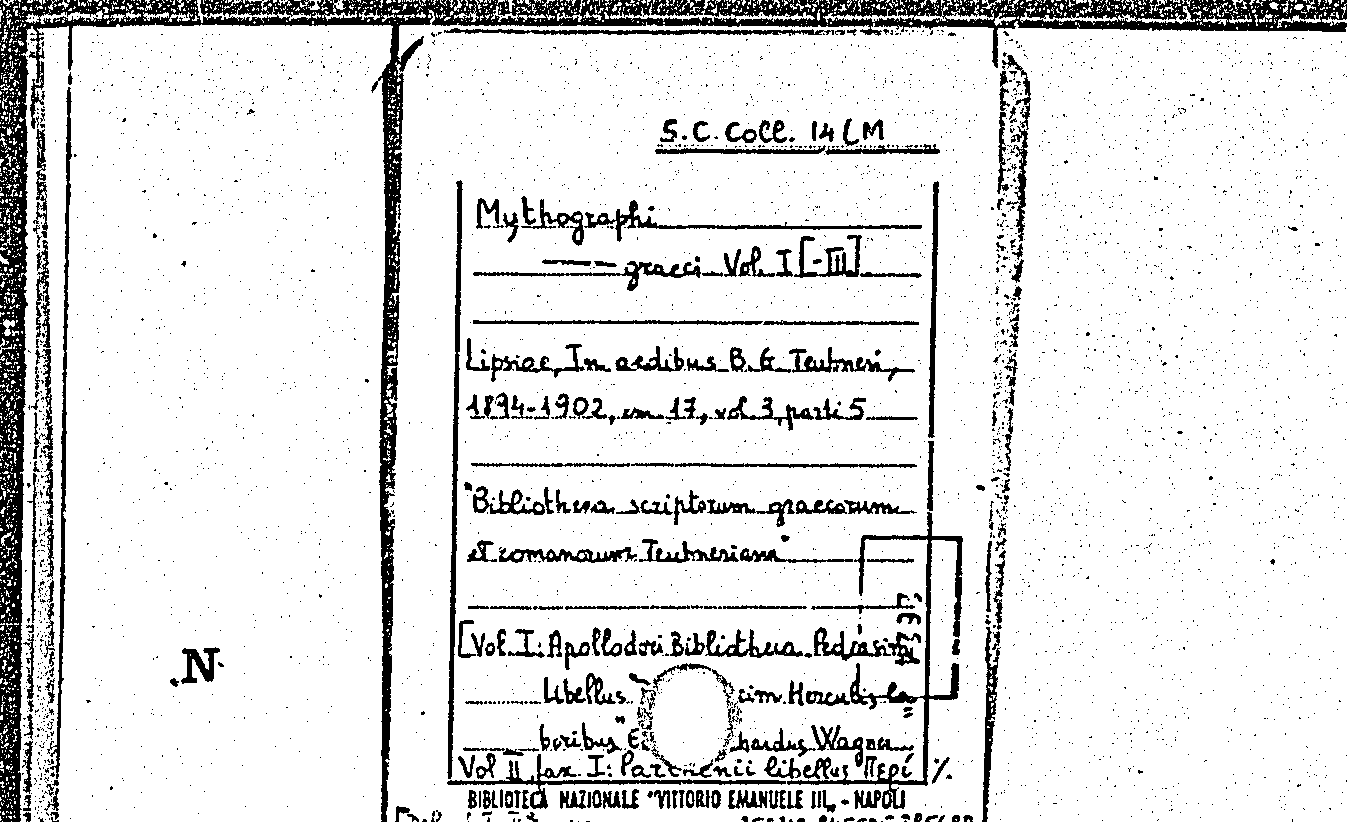 S.C. Coll. 14 (M
Mythographi
—— graeci Vol. I [-III]
Lipsiae, In aedibus B. G. Teubneri,
1894-1902, cm 17, vol. 3, parti 5
"Bibliotheca scriptorum graecorum
et romanorum Teubneriana"
[Vol. I: Apollodori Bibliotheca Pediasimi
libellus cim Herculis la=
boribus" E hardus Wagner
Vol II fax. I: Parthenii libellus "Περί %.
.N
BIBLIOTECA NAZIONALE "VITTORIO EMANUELE III" - NAPOLI